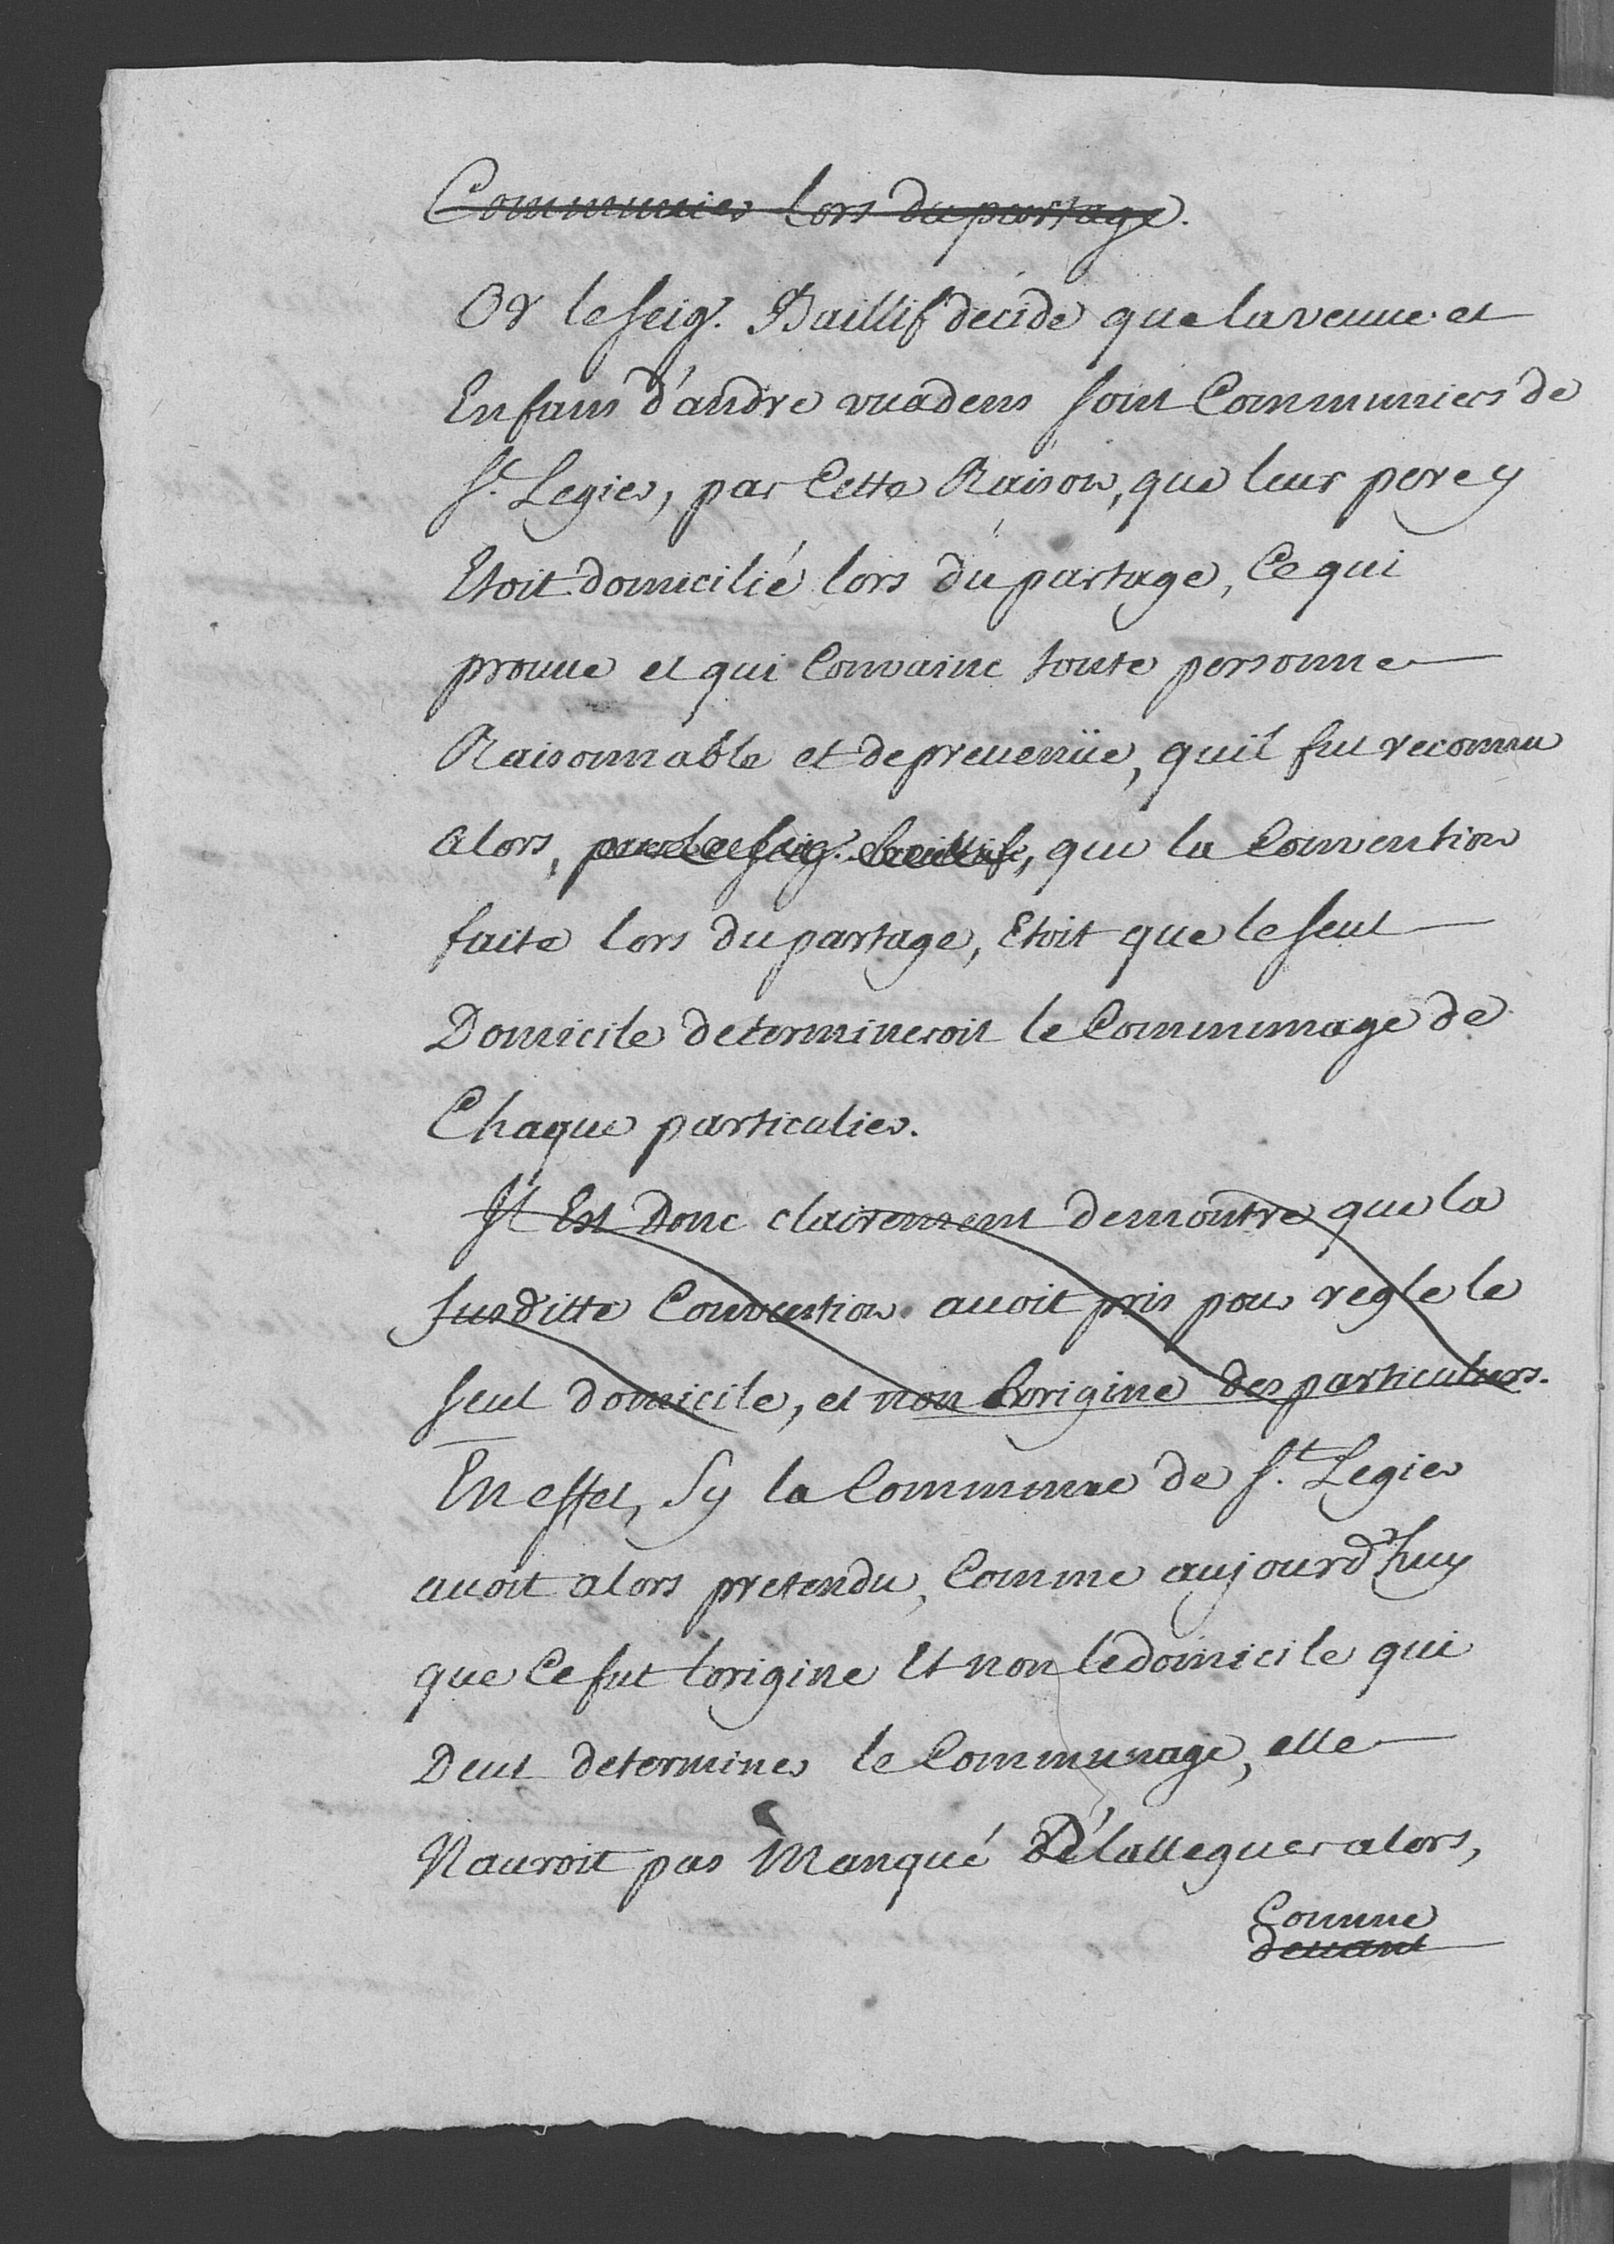 Communier lors du partage.
Or le seigr. Baillif décide que la veuve et
Enfans d'andre vuadens sont Communiers de
St. Legier, par Cette Raison, que leur pere y
Etoit domicilié lors du partage, Ce qui
prouve et qui Convainc toute personne
Raisonnable et deprevenüe, qu'il fut reconnu
alors, par le seigr. baillif, que la Convention
faite lors du partage, Etoit que le seul
Domicile determineroit le Communage de
Chaque particulier.
Il Est Donc clairement demontre que la
susditte Convention avoit pris pour regle le
seul domicile, et non l'origine des particuliers.
En effet, Sy la Commune de St. Legier
avoit alors pretendu, Comme aujourd'huy
que Ce fut l'origine Et non le domicile qui
Deut determiner le Communage, elle
Nauroit pas Manqué de l'alleguer alors,
Comme
devant